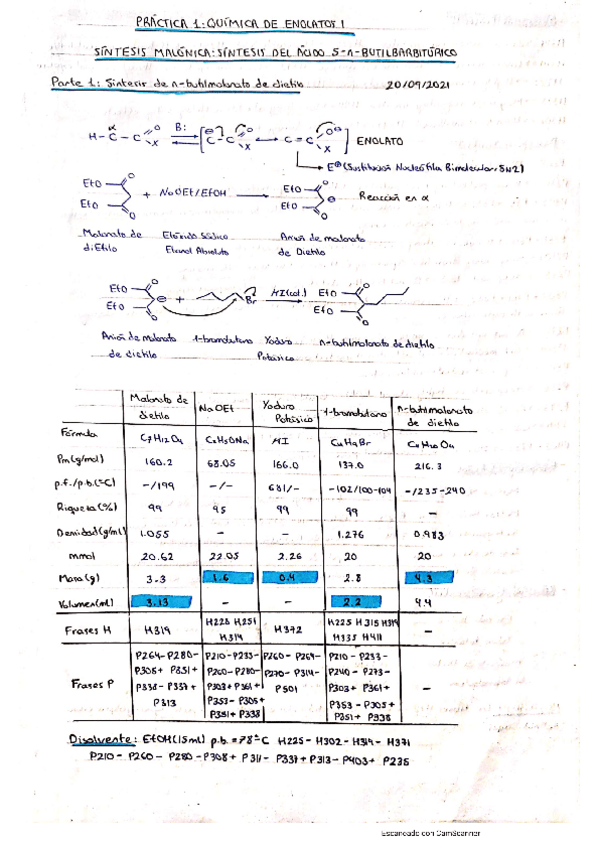 PRÁCTICA 1: QUÍMICA DE ENOLATOS I
SÍNTESIS MALÓNICA: SÍNTESIS DEL ÁCIDO 5-n-BUTILBARBITÚRICO
Parte 1: Síntesis de n-butilmalonato de dietilo 20/09/2021
H-C-C O X B: C-C O X C=C O X ENOLATO
E⊕ (Sustitución Nucleófila Bimolecular: SN2)
EtO O EtO O + NaOEt/EtOH EtO O EtO O ⊖ Reacción en α
Malonato de dietilo Etóxido Sódico Etanol Absoluto Anión de malonato de Dietilo
EtO O EtO O ⊖ + Br KI(cat.) EtO O EtO O
Anión de malonato de dietilo 1-bromobutano Yoduro Potásico n-butilmalonato de dietilo
Malonato de dietilo NaOEt Yoduro Potásico 1-bromobutano n-butilmalonato de dietilo
Fórmula C7H12O4 C2H5ONa KI C4H9Br
Pm(g/mol) 160.2 68.05 166.0 137.0 216.3
p.f./p.b.(ºC) -/199 -/- 681/- -102/100-104 -/235-240
Riqueza(%) 99 95 99 99 -
Densidad(g/mL) 1.055 - - 1.276 0.983
mmol 20.62 22.05 2.26 20 20
Masa(g) 3.3 1.6 0.4 2.8 4.3
Volumen(mL) 3.13 - - 2.2 4.4
Frases H H319 H228 H251 H314 H372 H225 H315 H319 H335 H411 -
Frases P P264-P280- P305+ P351+ P338- P337+ P313 P210-P235- P260-P280- P303+P361+ P353-P305+ P351+P338 P260-P264- P270-P314- P501 P210-P233- P240-P273- P303+P361+ P353-P305+ P351+P338 -
Disolvente: EtOH(15ml) p.b.=78ºC H225-H302-H319-H371
P210-P260-P280-P308+P311-P337+P313-P403+P235
Escaneado con CamScanner